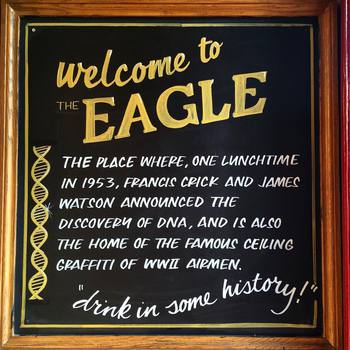 Welcome to
THE EAGLE
THE PLACE WHERE, ONE LUNCHTIME
IN 1953, FRANCIS CRICK AND JAMES
WATSON ANNOUNCED THE
DISCOVERY OF DNA, AND IS ALSO
THE HOME OF THE FAMOUS CEILING
GRAFFITI OF WWII AIRMEN.
"drink in some history!"